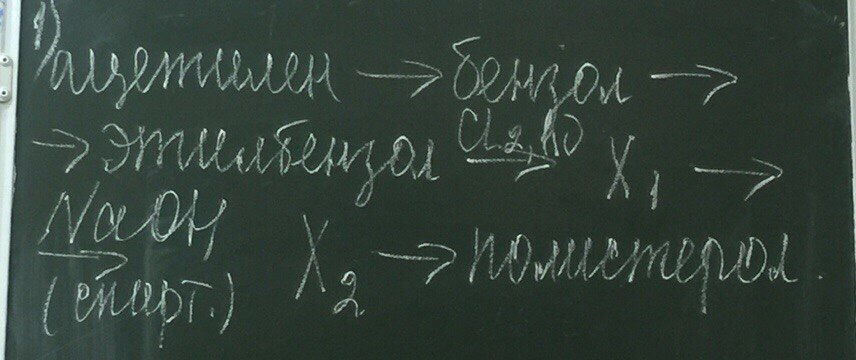 1) ацетилен → бензол →
→ этилбензол Cl2, hν → X1 →
NaOH (спирт.) → X2 → полистерол.